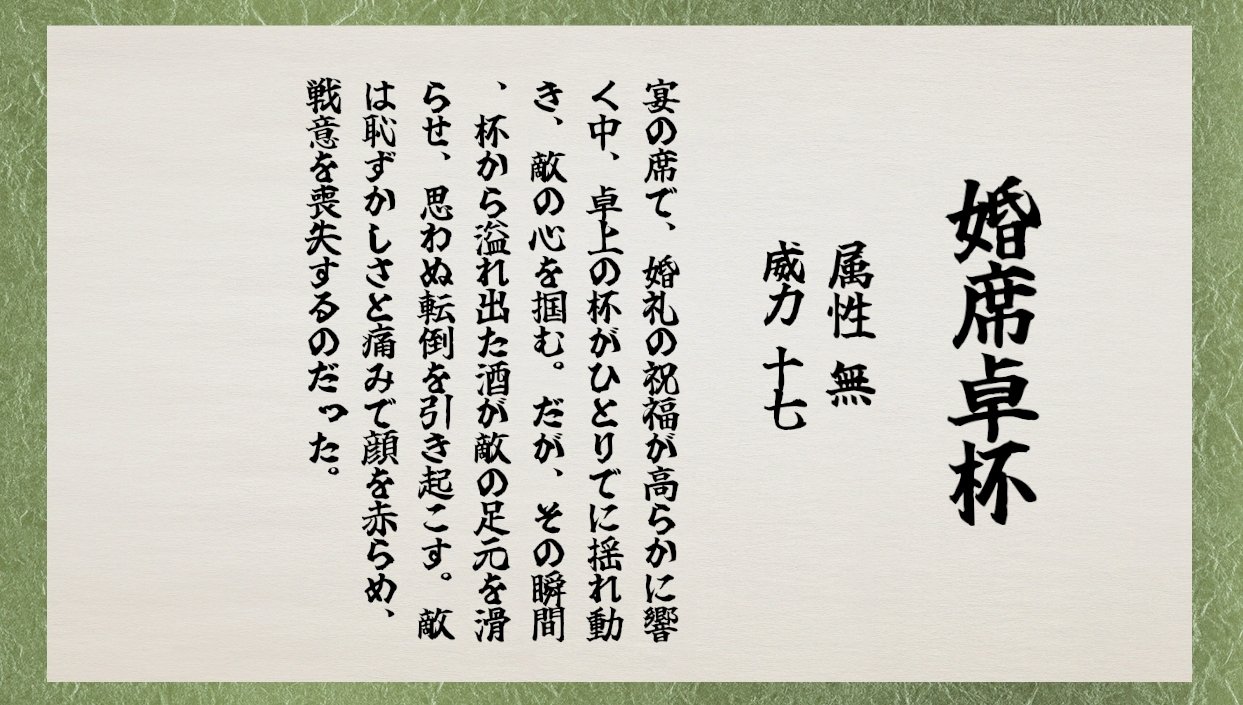 婚席卓杯
属性 無
威力 十七
宴の席で、婚礼の祝福が高らかに響
く中、卓上の杯がひとりでに揺れ動
き、敵の心を掴む。だが、その瞬間
、杯から溢れ出た酒が敵の足元を滑
らせ、思わぬ転倒を引き起こす。敵
は恥ずかしさと痛みで顔を赤らめ、
戦意を喪失するのだった。